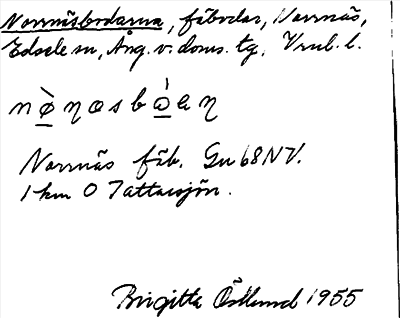 Norrnäsbodarna, fäbodar, Norrnäs,
Edsele sn, Ång. v. doms. tg.
nø̀ŋasbàaŋ
Norrnäs fäb. Gu 68 NV.
1 km O Tattarsjön.
Birgitta Östlund 1955